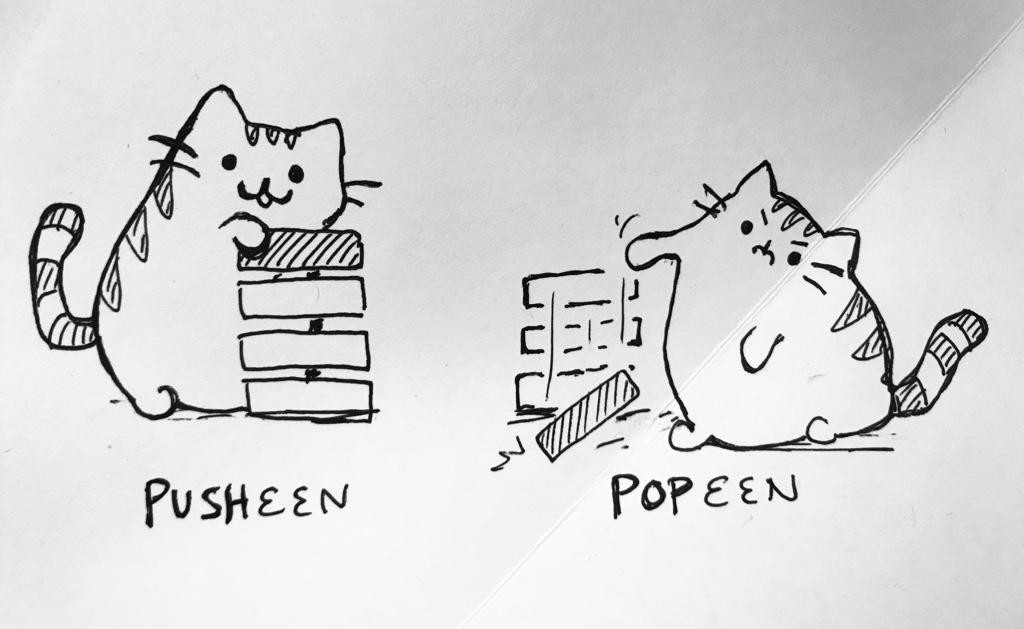 PUSHEEN
POPEEN